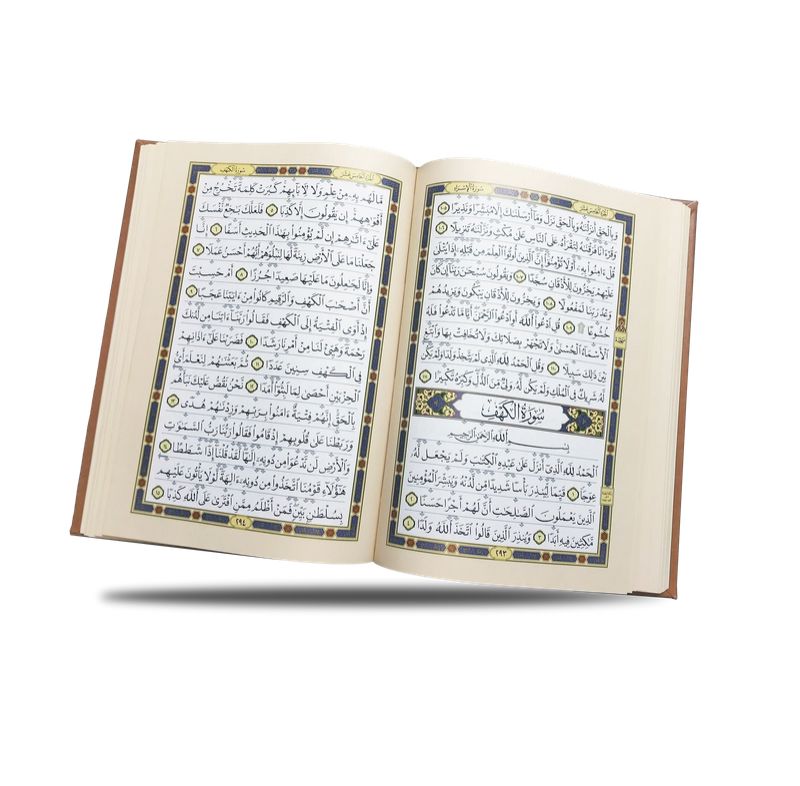 سُورَةُ الإِسْرَاءِ
الجُزْءُ الخَامِسَ عَشَرَ
وَبِٱلْحَقِّ أَنزَلْنَٰهُ وَبِٱلْحَقِّ نَزَلَ وَمَآ أَرْسَلْنَٰكَ إِلَّا مُبَشِّرًا وَنَذِيرًا ١٠٥
وَقُرْءَانًا فَرَقْنَٰهُ لِتَقْرَأَهُۥ عَلَى ٱلنَّاسِ عَلَىٰ مُكْثٍ وَنَزَّلْنَٰهُ تَنزِيلًا ١٠٦
قُلْ ءَامِنُوا۟ بِهِۦٓ أَوْ لَا تُؤْمِنُوٓا۟ إِنَّ ٱلَّذِينَ أُوتُوا۟ ٱلْعِلْمَ مِن قَبْلِهِۦٓ إِذَا يُتْلَىٰ
عَلَيْهِمْ يَخِرُّونَ لِلْأَذْقَانِ سُجَّدًا ١٠٧ وَيَقُولُونَ سُبْحَٰنَ رَبِّنَآ إِن كَانَ
وَعْدُ رَبِّنَا لَمَفْعُولًا ١٠٨ وَيَخِرُّونَ لِلْأَذْقَانِ يَبْكُونَ وَيَزِيدُهُمْ
خُشُوعًا ۩ ١٠٩ قُلِ ٱدْعُوا۟ ٱللَّهَ أَوِ ٱدْعُوا۟ ٱلرَّحْمَٰنَ أَيًّا مَّا تَدْعُوا۟ فَلَهُ
ٱلْأَسْمَآءُ ٱلْحُسْنَىٰ وَلَا تَجْهَرْ بِصَلَاتِكَ وَلَا تُخَافِتْ بِهَا وَٱبْتَغِ
بَيْنَ ذَٰلِكَ سَبِيلًا ١١٠ وَقُلِ ٱلْحَمْدُ لِلَّهِ ٱلَّذِى لَمْ يَتَّخِذْ وَلَدًا وَلَمْ يَكُن
لَّهُۥ شَرِيكٌ فِى ٱلْمُلْكِ وَلَمْ يَكُن لَّهُۥ وَلِىٌّ مِّنَ ٱلذُّلِّ وَكَبِّرْهُ تَكْبِيرًۢا ١١١
سُورَةُ الكَهْفِ
بِسْمِ ٱللَّهِ ٱلرَّحْمَٰنِ ٱلرَّحِيمِ
ٱلْحَمْدُ لِلَّهِ ٱلَّذِىٓ أَنزَلَ عَلَىٰ عَبْدِهِ ٱلْكِتَٰبَ وَلَمْ يَجْعَل لَّهُۥ
عِوَجَا ١ قَيِّمًا لِّيُنذِرَ بَأْسًا شَدِيدًا مِّن لَّدُنْهُ وَيُبَشِّرَ ٱلْمُؤْمِنِينَ
ٱلَّذِينَ يَعْمَلُونَ ٱلصَّٰلِحَٰتِ أَنَّ لَهُمْ أَجْرًا حَسَنًا ٢
مَّٰكِثِينَ فِيهِ أَبَدًا ٣ وَيُنذِرَ ٱلَّذِينَ قَالُوا۟ ٱتَّخَذَ ٱللَّهُ وَلَدًا ٤
٢٩٣
سُورَةُ الكَهْفِ
الجُزْءُ الخَامِسَ عَشَرَ
مَّا لَهُم بِهِۦ مِنْ عِلْمٍ وَلَا لِءَابَآئِهِمْ كَبُرَتْ كَلِمَةً تَخْرُجُ مِنْ
أَفْوَٰهِهِمْ إِن يَقُولُونَ إِلَّا كَذِبًا ٥ فَلَعَلَّكَ بَٰخِعٌ نَّفْسَكَ
عَلَىٰٓ ءَاثَٰرِهِمْ إِن لَّمْ يُؤْمِنُوا۟ بِهَٰذَا ٱلْحَدِيثِ أَسَفًا ٦ إِنَّا
جَعَلْنَا مَا عَلَى ٱلْأَرْضِ زِينَةً لَّهَا لِنَبْلُوَهُمْ أَيُّهُمْ أَحْسَنُ عَمَلًا ٧
وَإِنَّا لَجَٰعِلُونَ مَا عَلَيْهَا صَعِيدًا جُرُزًا ٨ أَمْ حَسِبْتَ
أَنَّ أَصْحَٰبَ ٱلْكَهْفِ وَٱلرَّقِيمِ كَانُوا۟ مِنْ ءَايَٰتِنَا عَجَبًا ٩
إِذْ أَوَى ٱلْفِتْيَةُ إِلَى ٱلْكَهْفِ فَقَالُوا۟ رَبَّنَآ ءَاتِنَا مِن لَّدُنكَ
رَحْمَةً وَهَيِّئْ لَنَا مِنْ أَمْرِنَا رَشَدًا ١٠ فَضَرَبْنَا عَلَىٰٓ ءَاذَانِهِمْ
فِى ٱلْكَهْفِ سِنِينَ عَدَدًا ١١ ثُمَّ بَعَثْنَٰهُمْ لِنَعْلَمَ أَىُّ
ٱلْحِزْبَيْنِ أَحْصَىٰ لِمَا لَبِثُوٓا۟ أَمَدًا ١٢ نَّحْنُ نَقُصُّ عَلَيْكَ نَبَأَهُم
بِٱلْحَقِّ إِنَّهُمْ فِتْيَةٌ ءَامَنُوا۟ بِرَبِّهِمْ وَزِدْنَٰهُمْ هُدًى ١٣
وَرَبَطْنَا عَلَىٰ قُلُوبِهِمْ إِذْ قَامُوا۟ فَقَالُوا۟ رَبُّنَا رَبُّ ٱلسَّمَٰوَٰتِ
وَٱلْأَرْضِ لَن نَّدْعُوَا۟ مِن دُونِهِۦٓ إِلَٰهًا لَّقَدْ قُلْنَآ إِذًا شَطَطًا ١٤
هَٰٓؤُلَآءِ قَوْمُنَا ٱتَّخَذُوا۟ مِن دُونِهِۦٓ ءَالِهَةً لَّوْلَا يَأْتُونَ عَلَيْهِم
بِسُلْطَٰنٍۭ بَيِّنٍ فَمَنْ أَظْلَمُ مِمَّنِ ٱفْتَرَىٰ عَلَى ٱللَّهِ كَذِبًا ١٥
٢٩٤